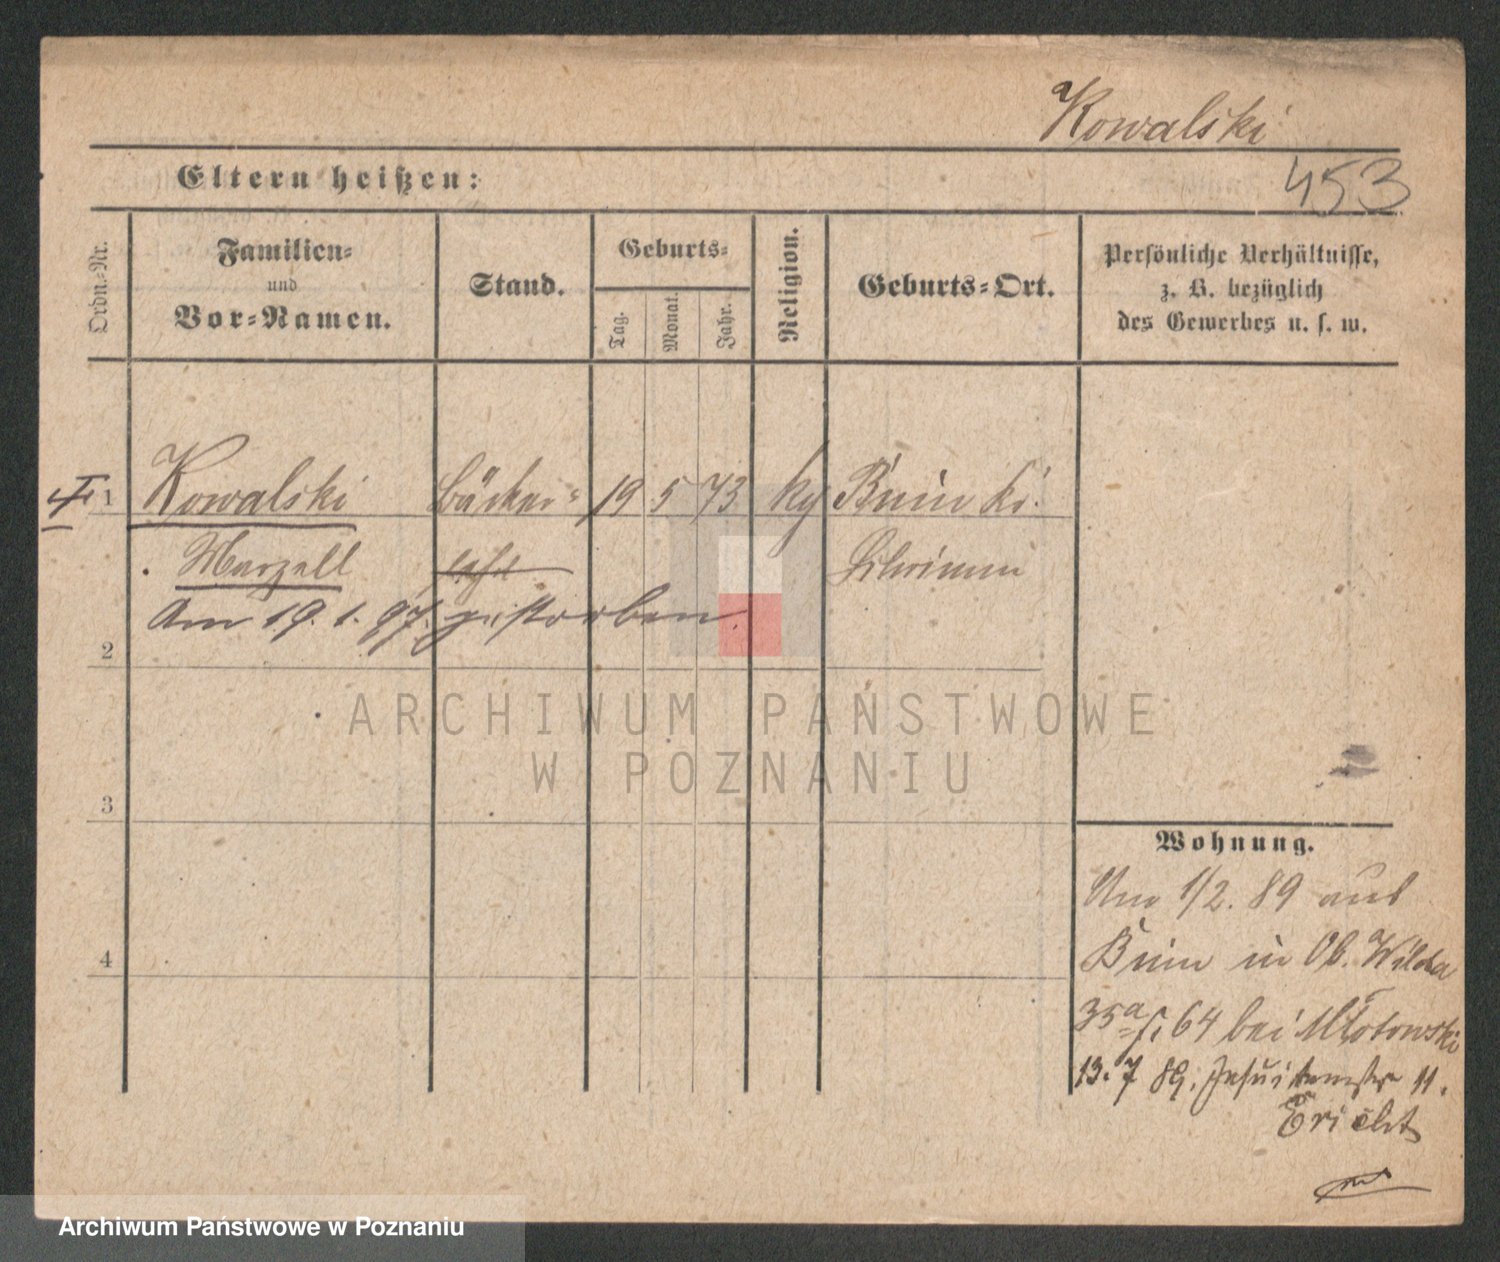 Kowalski
453
Eltern heißen:
Ordn.-Nr.
Familien-
und
Vor-Namen.
Stand.
Geburts-
Tag.
Monat.
Jahr.
Religion.
Geburts-Ort.
Persönliche Verhältnisse,
z. B. bezüglich
des Gewerbes u. s. w.
1 Kowalski Bäcker- 19 5 73 kg Bnin Kr.
Marzell Schrimm
Am 19. 1. 97. gestorben.
2
3
4
Wohnung.
1/2. 89 aus
Bnin in Ob. Wilda
35a b. 64 bei Młotowski
13. 7 89. Jesuitenstr 11.
ARCHIWUM PAŃSTWOWE
W POZNANIU
Archiwum Państwowe w Poznaniu